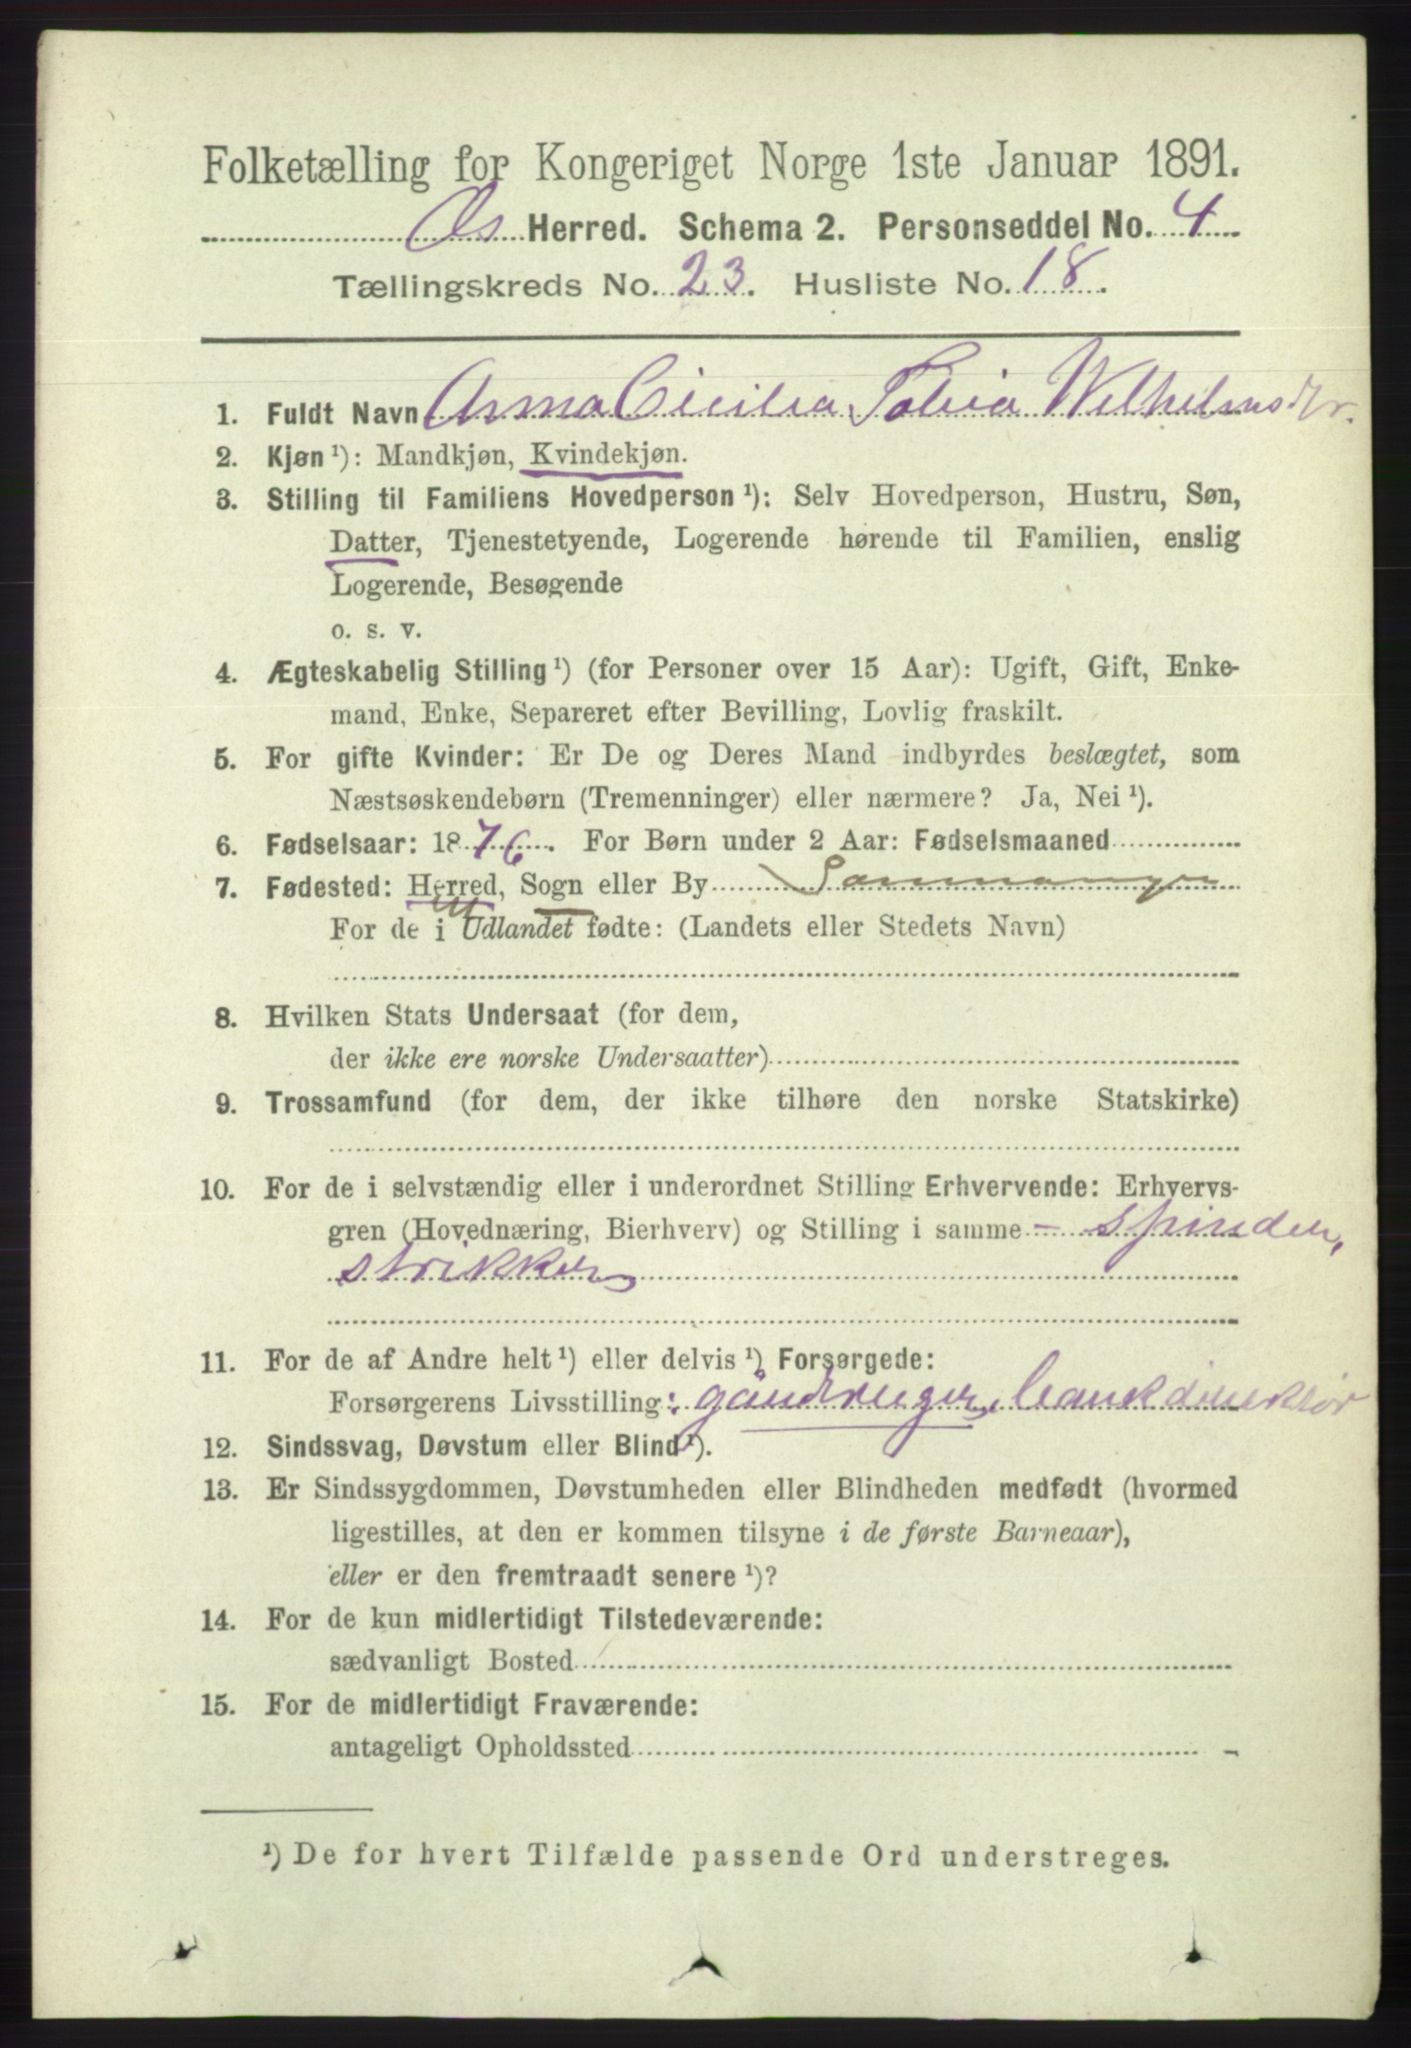 Folketælling for Kongeriget Norge 1ste Januar 1891.
Os Herred. Schema 2. Personseddel No. 4
Tællingskreds No. 23. Husliste No. 18.
1. Fuldt Navn Anna Cicilia Wilhelmsdtr.
2. Kjøn ¹): Mandkjøn, Kvindekjøn.
3. Stilling til Familiens Hovedperson ¹): Selv Hovedperson, Hustru, Søn,
Datter, Tjenestetyende, Logerende hørende til Familien, enslig
Logerende, Besøgende
o. s. v.
4. Ægteskabelig Stilling ¹) (for Personer over 15 Aar): Ugift, Gift, Enke-
mand, Enke, Separeret efter Bevilling, Lovlig fraskilt.
5. For gifte Kvinder: Er De og Deres Mand indbyrdes beslægtet, som
Næstsøskendebørn (Tremenninger) eller nærmere? Ja, Nei ¹).
6. Fødselsaar: 1876. For Børn under 2 Aar: Fødselsmaaned
7. Fødested: Herred, Sogn eller By
For de i Udlandet fødte: (Landets eller Stedets Navn)
8. Hvilken Stats Undersaat (for dem,
der ikke ere norske Undersaatter)
9. Trossamfund (for dem, der ikke tilhøre den norske Statskirke)
10. For de i selvstændig eller i underordnet Stilling Erhvervende: Erhvervs-
gren (Hovednæring, Bierhverv) og Stilling i samme – spinder,
strikker
11. For de af Andre helt ¹) eller delvis ¹) Forsørgede:
Forsørgerens Livsstilling: gaardbruger, bankdirektør
12. Sindssvag, Døvstum eller Blind ¹).
13. Er Sindssygdommen, Døvstumheden eller Blindheden medfødt (hvormed
ligestilles, at den er kommen tilsyne i de første Barneaar),
eller er den fremtraadt senere ¹)?
14. For de kun midlertidigt Tilstedeværende:
sædvanligt Bosted
15. For de midlertidigt Fraværende:
antageligt Opholdssted
¹) De for hvert Tilfælde passende Ord understreges.